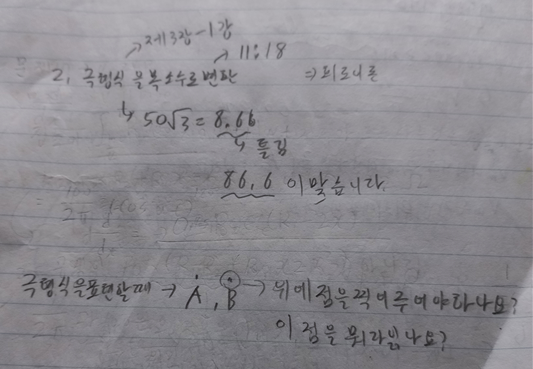 제3강-1강
11:18
2, 극형식을 복소수로 변환 ⇒ 회로이론
↳ 50√3 = 8.66
↳ 틀림
86.6 이 맞습니다.
극형식을 표현할때 → Ȧ, Ḃ → 위에 점을 찍어주어야 하나요?
이 점을 뭐라 읽나요?